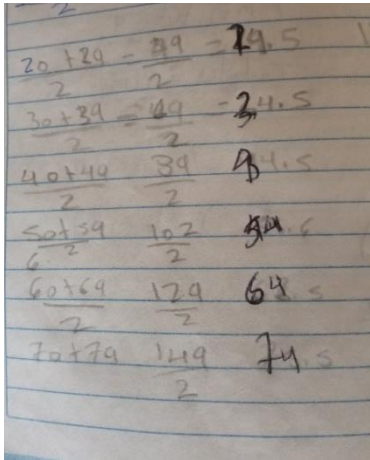 20+29/2 = 49/2 = 24.5
30+39/2 = 69/2 = 34.5
40+49/2 89/2 44.5
50+59/2 102/2 54.5
60+69/2 129/2 64.5
70+79 149/2 74.5